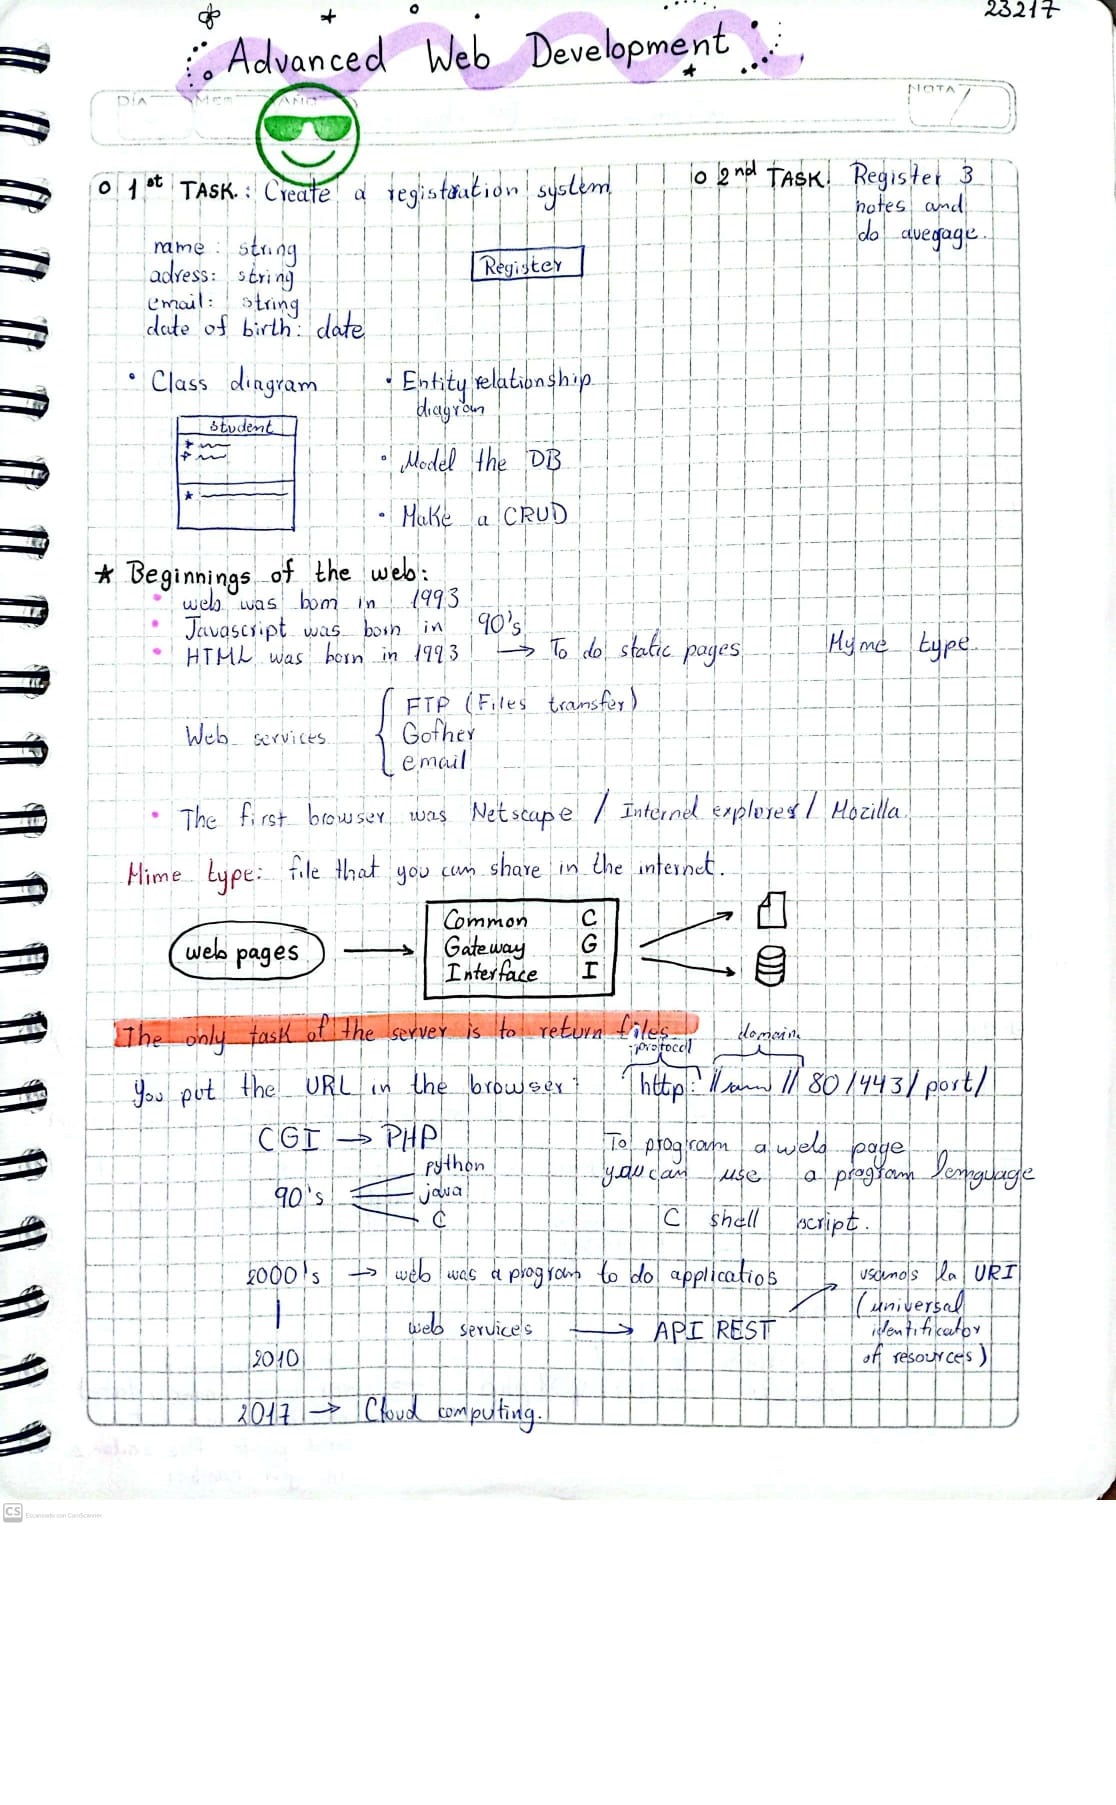 23217
Advanced Web Development
DÍA MES AÑO NOTA
o 1st TASK.: Create a registration system
o 2nd TASK. Register 3
notes and
do avegage.
name: string
adress: string
email: string
date of birth: date
Register
• Class diagram
• Entity relationship
diagram
Student
• Model the DB
• Make a CRUD
★ Beginnings of the web:
• web was born in 1993
• Javascript was born in 90's
• HTML was born in 1993 → To do static pages
Myme type
Web services { FTP (Files transfer)
Gofher
email
• The first browser was Netscape / Internel explorer / Mozilla.
Mime type: file that you can share in the internet.
web pages →
Common C
Gateway G
Interface I
The only task of the server is to return files
protocol domain
You put the URL in the browser: http: // // 80/443/port/
CGI → PHP
90's
python
java
C
To program a web page
you can use a program lenguage
C shell script.
2000's → web was a program to do applicatios
web services → API REST
usamos la URI
(universal
identificator
of resources)
2010
2017 → Cloud computing.
CS Escaneado con CamScanner